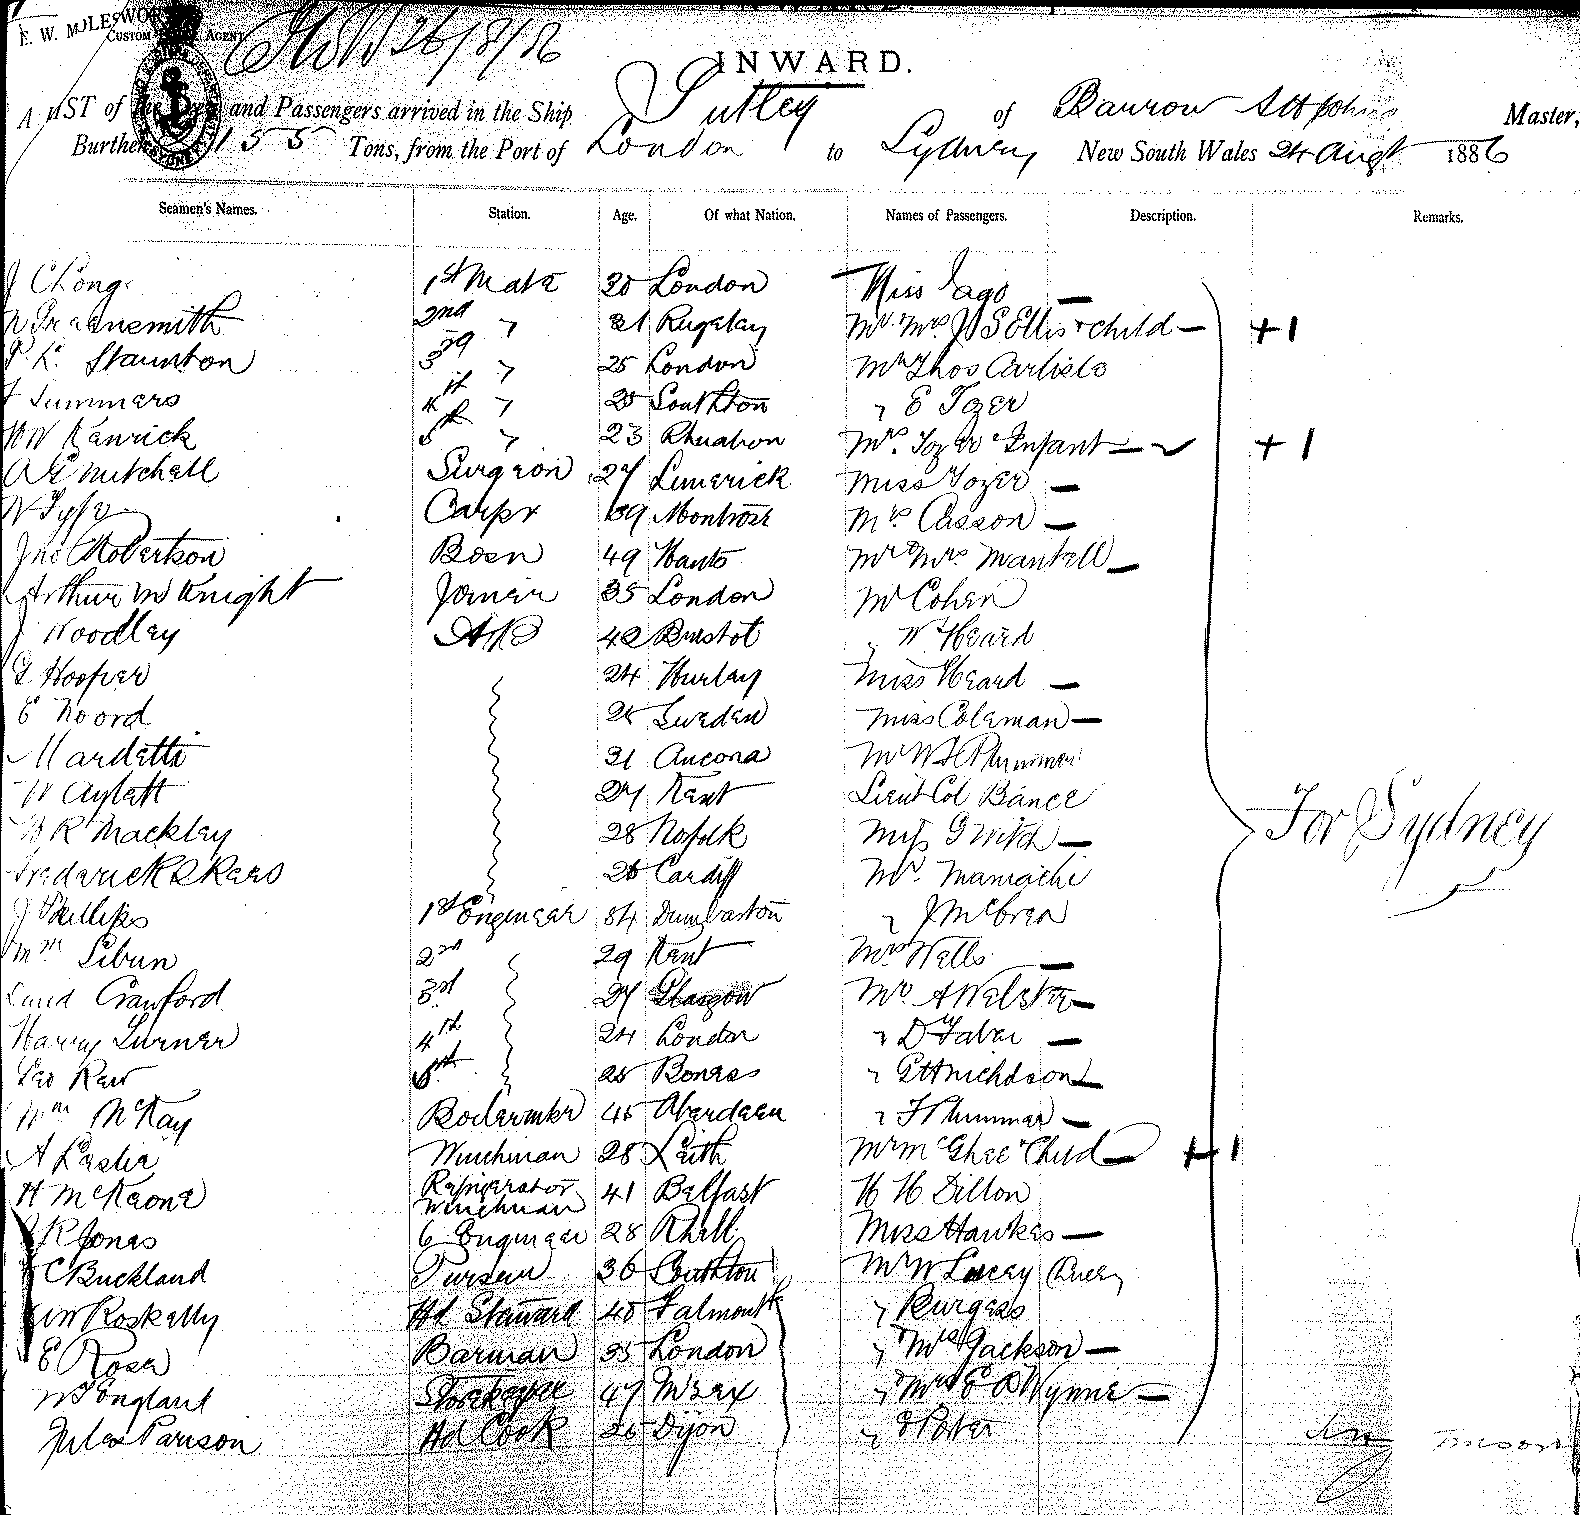 E. W. MOLESWOR
CUSTOM AGENT
26/8/86
INWARD.
A LIST of the Crew and Passengers arrived in the Ship Sutlej of Barrow Master,
Burthen 155 Tons, from the Port of London to Sydney New South Wales 24 Augt 1886
Seamen's Names. Station. Age. Of what Nation. Names of Passengers. Description. Remarks.
J Chong 1st Mate 30 London Miss Jago —
Greensmith 2nd " 31 Rugeley Mr Mrs J S Ellis + child — +1
Staunton 3rd " 25 London Mr Thos Carlisle
Summers 4th " 25 Southton " E Tozer
W Kenrick 5th " 23 Rhuabon Mrs Tozer Infant — +1
A E Mitchell Surgeon 27 Limerick Miss Tozer —
W Fyfe Carpr 39 Montrose Mrs Casson —
Jno Robertson Bosn 49 Hants Mr Mrs Mantell —
Arthur W Knight Joiner 35 London Mr Cohen
J Woodley AB 42 Bristol " W Heard
Hooper 24 Hurley Miss Heard —
E Noord 25 Sweden Miss Coleman —
Mardetti 31 Ancona Mr W Plummer
W Aylett 27 Kent Lieut Col Bance
R Mackley 28 Norfolk Miss —
Frederick Skers 26 Cardiff Mr.
J Phillips 1st Engineer 34 Dumbarton "
Wm Sibun 2nd 29 Kent Mrs Wells —
Crawford 3rd 27 Glasgow A Webster —
Harry Turner 4th 24 London " D Faber —
Geo Raw 5th 25 Boness " —
Wm McKay Boilermker 45 Aberdeen " Plummer —
A Leslie Winchman 28 Leith Mr McGhee Child — +1
H McKeone Refrigerator Winchman 41 Belfast H H Dillon
R Jones 6 Engineer 28 Rhyll Miss Hawkes —
C Buckland Purser 36 Southton Mr W Lucey
W Roskelly Hd Steward 40 Falmouth " Burgess
E Rosa Barman 35 London " Mrs Jackson —
W England Storekeeper 47 Msex " Mrs E B Wynne —
Jules Parison Hd Cook 36 Dijon "
For Sydney